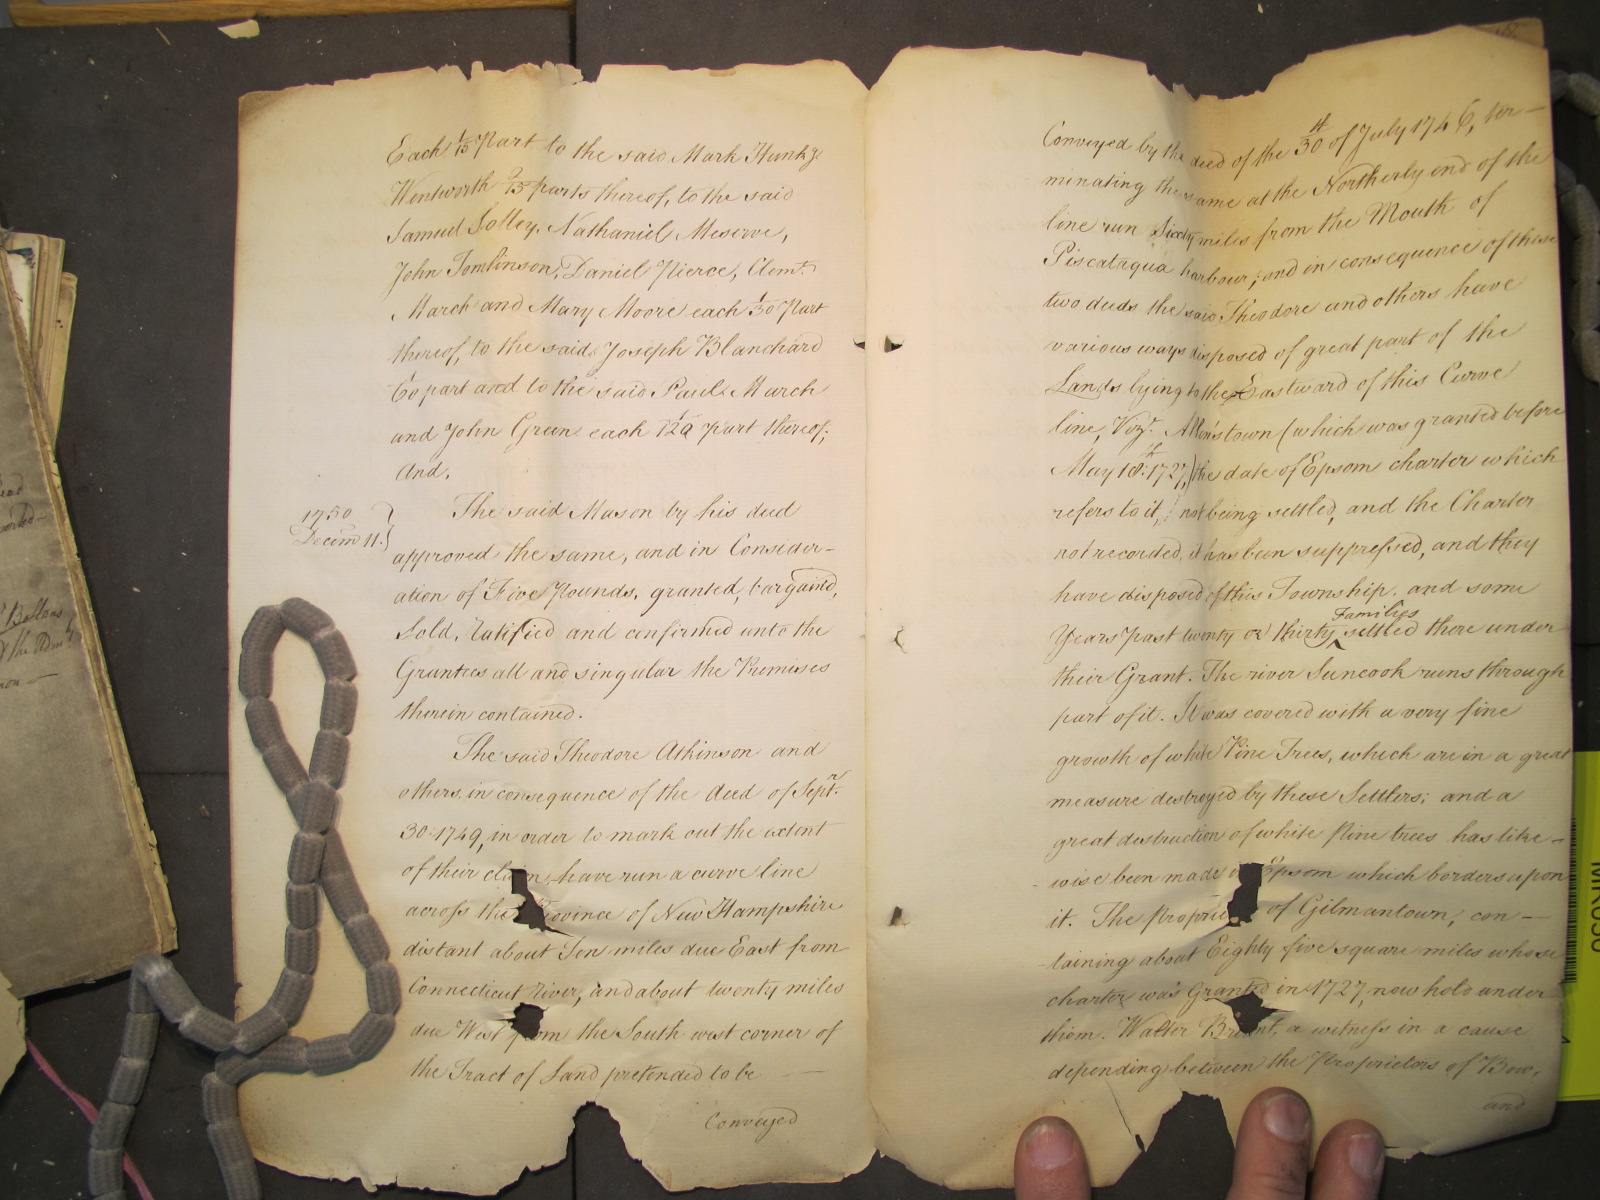 Each 1/15 Part to the said Mark Hunkg.
Wentworth 2/15 parts thereof, to the said
Samuel Solley, Nathaniel Meserve,
John Tomlinson, Daniel Pierce, Clemt.
March and Mary Moore each 1/30 Part
thereof, to the said Joseph Blanchard
1/60 part and to the said Paul March
and John Green each 1/120 part thereof;
And,
1750
Decem 11.
The said Mason by his deed
approved the same, and in Consider-
ation of Five Pounds, granted, bargained,
Sold, Ratified and confirmed unto the
Grantees all and singular the Premises
therein contained.
The said Theodore Atkinson and
others, in consequence of the deed of Sepr.
30. 1749, in order to mark out the extent
of their claim, have run a curve line
across the Province of New Hampshire
distant about Ten miles due East from
Connecticut river, and about twenty miles
due West from the South west corner of
the Tract of Land pretended to be —
Conveyed
Conveyed by the deed of the 30th of July 1746, ter-
minating the same at the Northerly end of the
line run Sixty miles from the Mouth of
Piscataqua harbour; and in consequence of these
two deeds the said Theodore and others have
various ways disposed of great part of the
Lands lying to the Eastward of this Curve
line, Vizt. Allenstown (which was granted before
May 18th: 1727,) the date of Epsom charter which
refers to it, not being settled, and the Charter
not recorded, it has been suppressed, and they
have disposed of this Township. and some
Years Past twenty or thirty Families settled there under
their Grant. The river Suncook runs through
part of it. It was covered with a very fine
growth of white Pine Trees, which are in a great
measure destroyed by these Settlers; and a
great destruction of white Pine trees has like-
wise been made in Epsom which borders upon
it. The Proprie of Gilmantown, con-
taining about Eighty five square miles whose
charter was Granted in 1727, now hold under
them. Walter Bryant, a witness in a cause
depending between the Proprietors of Bow,
and